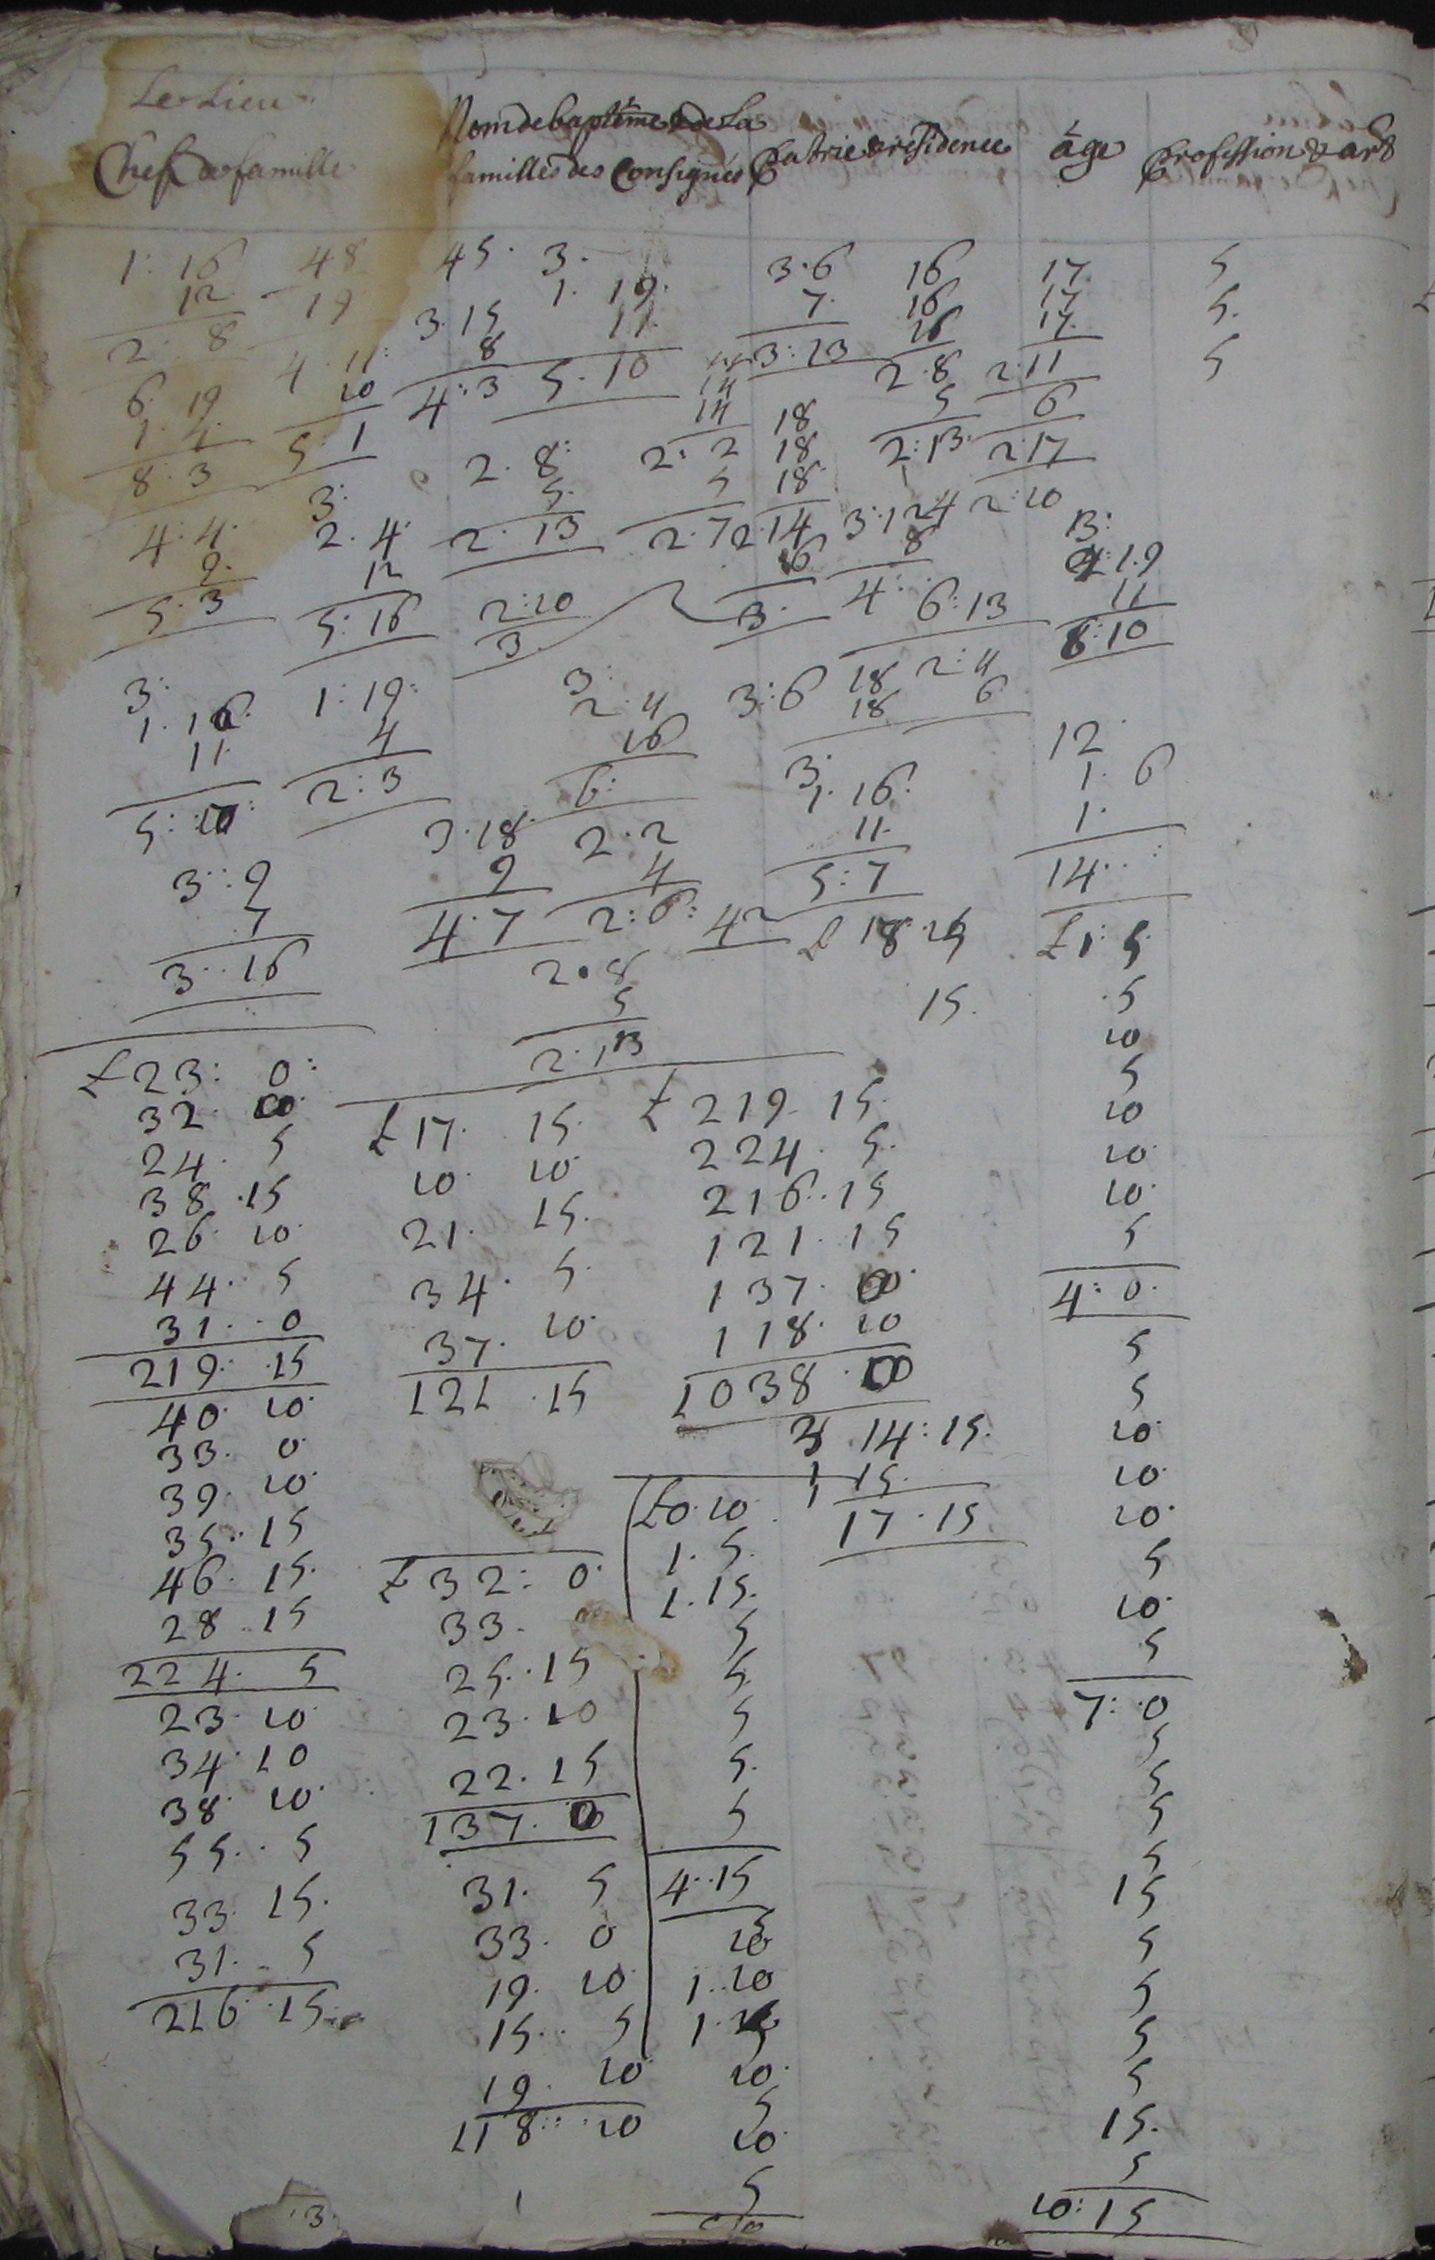 Le Lieu
Chef de famille
Nom de baptéme & de La
familles des Consignés
Patrie & residence
âge
Profession & art
1: 16 48 45. 3. 3.6 16 17 5
12 19 1. 19. 7. 16 17 5.
2. 8 3.15 11. 3:13 16 17. 5
4.11: 8 5.10 2.8 2.11
6. 19 10 4:3 14 5 6
1. 4. 5:1 14 18 2:13. 2.17
8.3 2.8: 2:2 18 2:10
3: 5. 5 18
4:4. 2.4. 2.13 2.7 2.14 3:12 4 13:
9. 12 16 8 2:19
5.3 5:16 2:10 3. 4: 6:13 11
3. 8:10
3: 1:19: 3: 3:6 18 2:4
1.16. 4 2.4 18 6 12
11 2:3 16 3: 1. 6
5: 10: 6: 1.16. 1.
3.18. 2.2 11. 14..
3:9 9 4 5:7
7 4.7 2:6: 42 £ 18:15 £1:5.
3:16 2.8 15. 5
5 10
2.13 5
£23: 0: £17. 15. £219. 15. 10
32 00. 10. 10. 224. 5. 10.
24. 5 21. 15. 216..15 10.
38.15 34. 5. 121.15 5
26. 10. 37. 10. 137. 00. 4:0.
44.. 5 121.15 118. 10 5
31.. 0 1038.00 5
219..15 3 14:15. 10.
40. 10. 1 15. 10.
33. 0. 17.15 10.
39. 10. £0.10 5
35..15 1. 5. 10.
46. 15. £32: 0. 1.15. 5
28.15 33. 5 7:0
224. 5 25..15 5. 5
23. 10. 23.10 5 5
34.10 22.15 5. 5
38. 10. 137. 0 5 5
55.. 5 31. 5 4..15 15
33. 15. 33. 0 10 5
31.. 5 19. 10 1..10 5
216..15. 15.. 5 1. 5
19. 10 10. 5
118:.10 5 15.
10. 5
5 10:15
3.